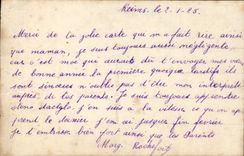 Reims, le 2-1-25.
Merci de la jolie carte qui m'a fait rire ainsi
que maman, je suis toujours aussi négligente
car c'est moi qui aurais dû t'envoyer mes vœux
de bonne année la première, quoique tardifs ils
sont sincères n'oublie pas d'être mon interprète
auprès de tes parents. Je vais toujours apprendre
sténo dactylo, j'en suis à la vitesse ce qu'on ap
prend le dernier, j'en ai jusque fin février
Je t'embrasse bien fort ainsi que tes Parents
Marg. Rochefort